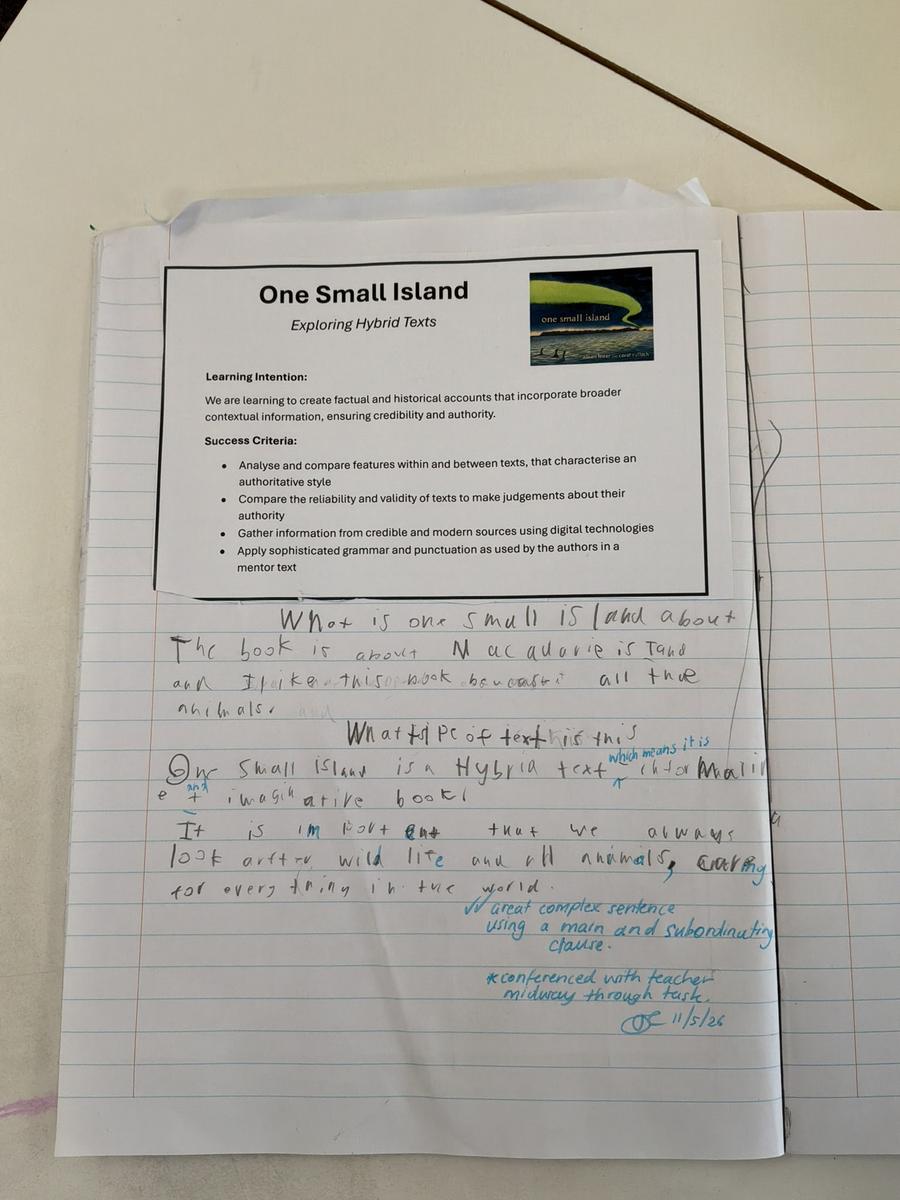 One Small Island
Exploring Hybrid Texts
one small island
Learning Intention:
We are learning to create factual and historical accounts that incorporate broader
contextual information, ensuring credibility and authority.
Success Criteria:
• Analyse and compare features within and between texts, that characterise an
authoritative style
• Compare the reliability and validity of texts to make judgements about their
authority
• Gather information from credible and modern sources using digital technologies
• Apply sophisticated grammar and punctuation as used by the authors in a
mentor text
What is one small island about
The book is about Macquarie island
and I like this book all the
animals.
What of text is this
which means it is
One small island is a Hybrid text
and
book
It is important that we always
look after wild life and all animals, caring
for every thing in the world.
√√ Great complex sentence
using a main and subordinating
clause.
*conferenced with teacher
midway through task.
11/5/26